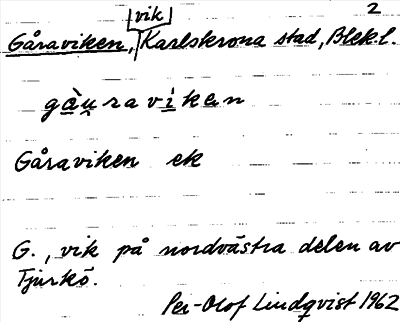 vik 2
Gåraviken, Karlskrona stad, Blek.l.
gàu̯raviken
Gåraviken ek
G., vik på nordvästra delen av
Tjurkö.
Per-Olof Lindqvist 1962